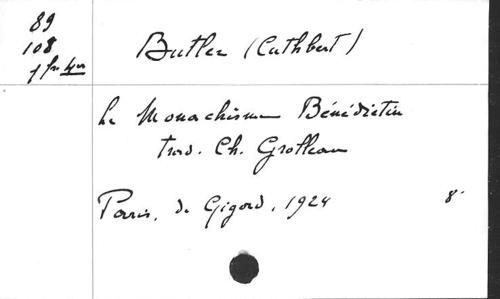 89
108
Butler (Cuthbert)
Le Monachisme Bénédictin
trad. Ch. Grolleau
Paris, de Gigord, 1924
8°